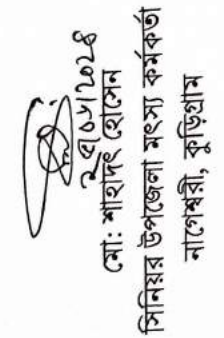 মো: শাহাদৎ হোসেন
সিনিয়র উপজেলা মৎস্য কর্মকর্তা
নাগেশ্বরী, কুড়িগ্রাম